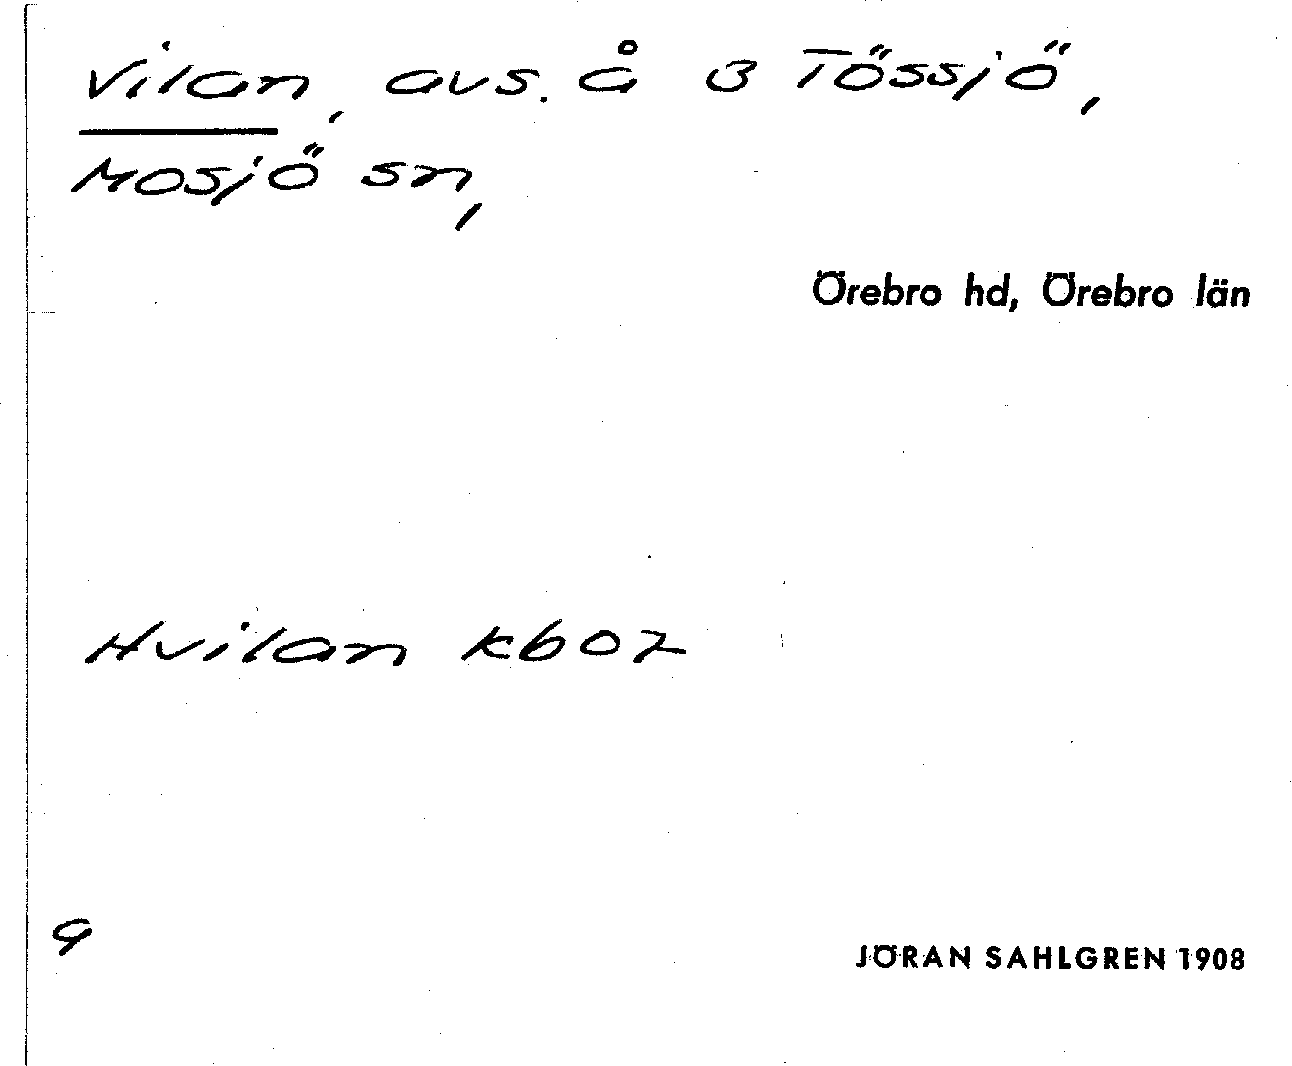 Vilan, avs. å 3 Tössjö,
Mosjö sn,
Örebro hd, Örebro län
Hvilan kb 02
9
JÖRAN SAHLGREN 1908